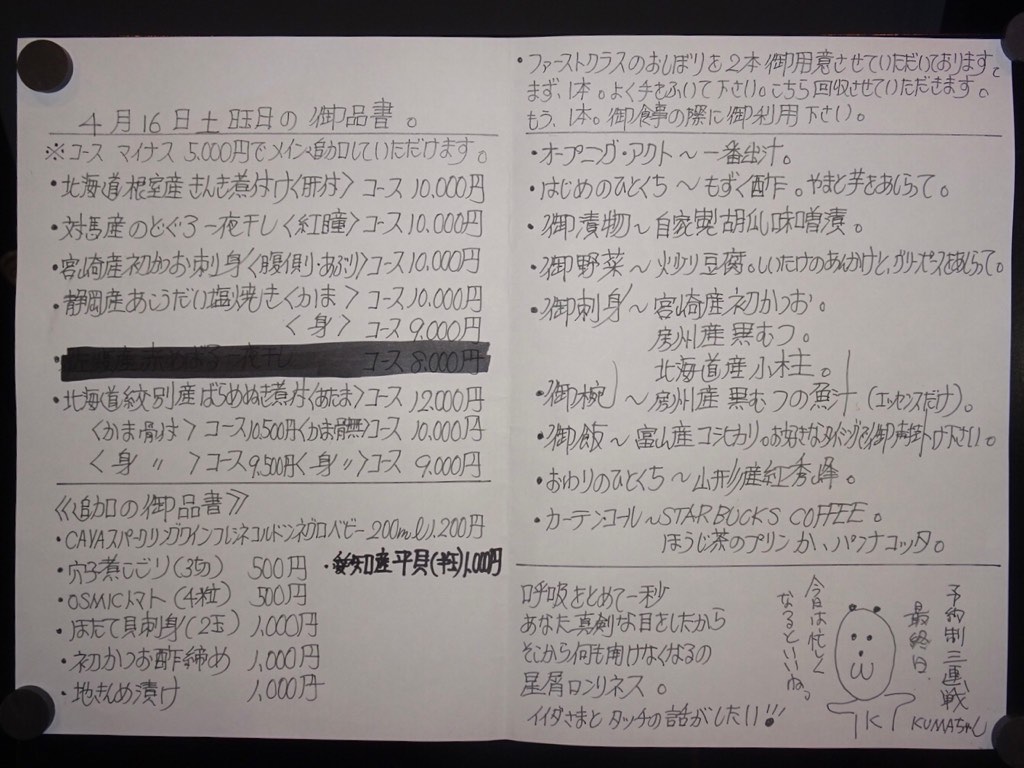 4月16日土曜日の御品書。
※コース マイナス 5.000円でメイン追加していただけます。
・北海道根室産きんき煮付け〈肝付〉コース 10,000円
・対馬産のどぐろ一夜干し〈紅瞳〉コース 10,000円
・宮崎産初かつお刺身〈腹側・あぶり〉コース 10,000円
・静岡産あこうだい塩焼き〈かま〉コース 10,000円
〈身〉コース 9,000円
産赤めばる一夜干し コース 8,000円
・北海道紋別産ばらめぬき煮付〈あたま〉コース 12,000円
〈かま骨付〉コース10,500円〈かま骨無〉コース 10,000円
〈身 〃 〉コース 9,500円〈身〃〉コース 9,000円
《追加の御品書》
・CAVAスパークリングワインフレシネコルドンネグロベビー200ml 1,200円
・穴子煮こごり(3切) 500円
・愛知産平貝(半生)1,000円
・OSMICトマト(4粒) 500円
・ほたて貝刺身(2玉) 1,000円
・初かつお酢締め 1,000円
・地きんめ漬け 1,000円
・ファーストクラスのおしぼりを2本御用意させていただいております。
まず、1本。よく手をふいて下さい。こちら回収させていただきます。
もう、1本。御食事の際に御利用下さい。
・オープニング・アクト〜一番出汁。
・はじめのひとくち〜もずく酢。やまと芋をあしらって。
・御漬物〜自家製胡瓜味噌漬。
・御野菜〜炒り豆腐。しいたけのあんかけと、グリーンピースをあしらって。
・御刺身〜宮崎産初かつお。
房州産黒むつ。
北海道産小柱。
・御椀〜房州産黒むつの魚汁(エッセンスだけ)。
・御飯〜富山産コシヒカリ。お好きなタイミングで御声掛け下さい。
・おわりのひとくち〜山形産紅秀峰。
・カーテンコール〜STARBUCKS COFFEE。
ほうじ茶のプリンか、パンナコッタ。
呼吸をとめて一秒
あなた真剣な目をしたから
そこから何も聞けなくなるの
星屑ロンリネス。
イイダさまとタッチの話がしたい!!!
今日は忙しく
なるといいね。
予約制三連戦
最終日。
TKT KUMAちゃん